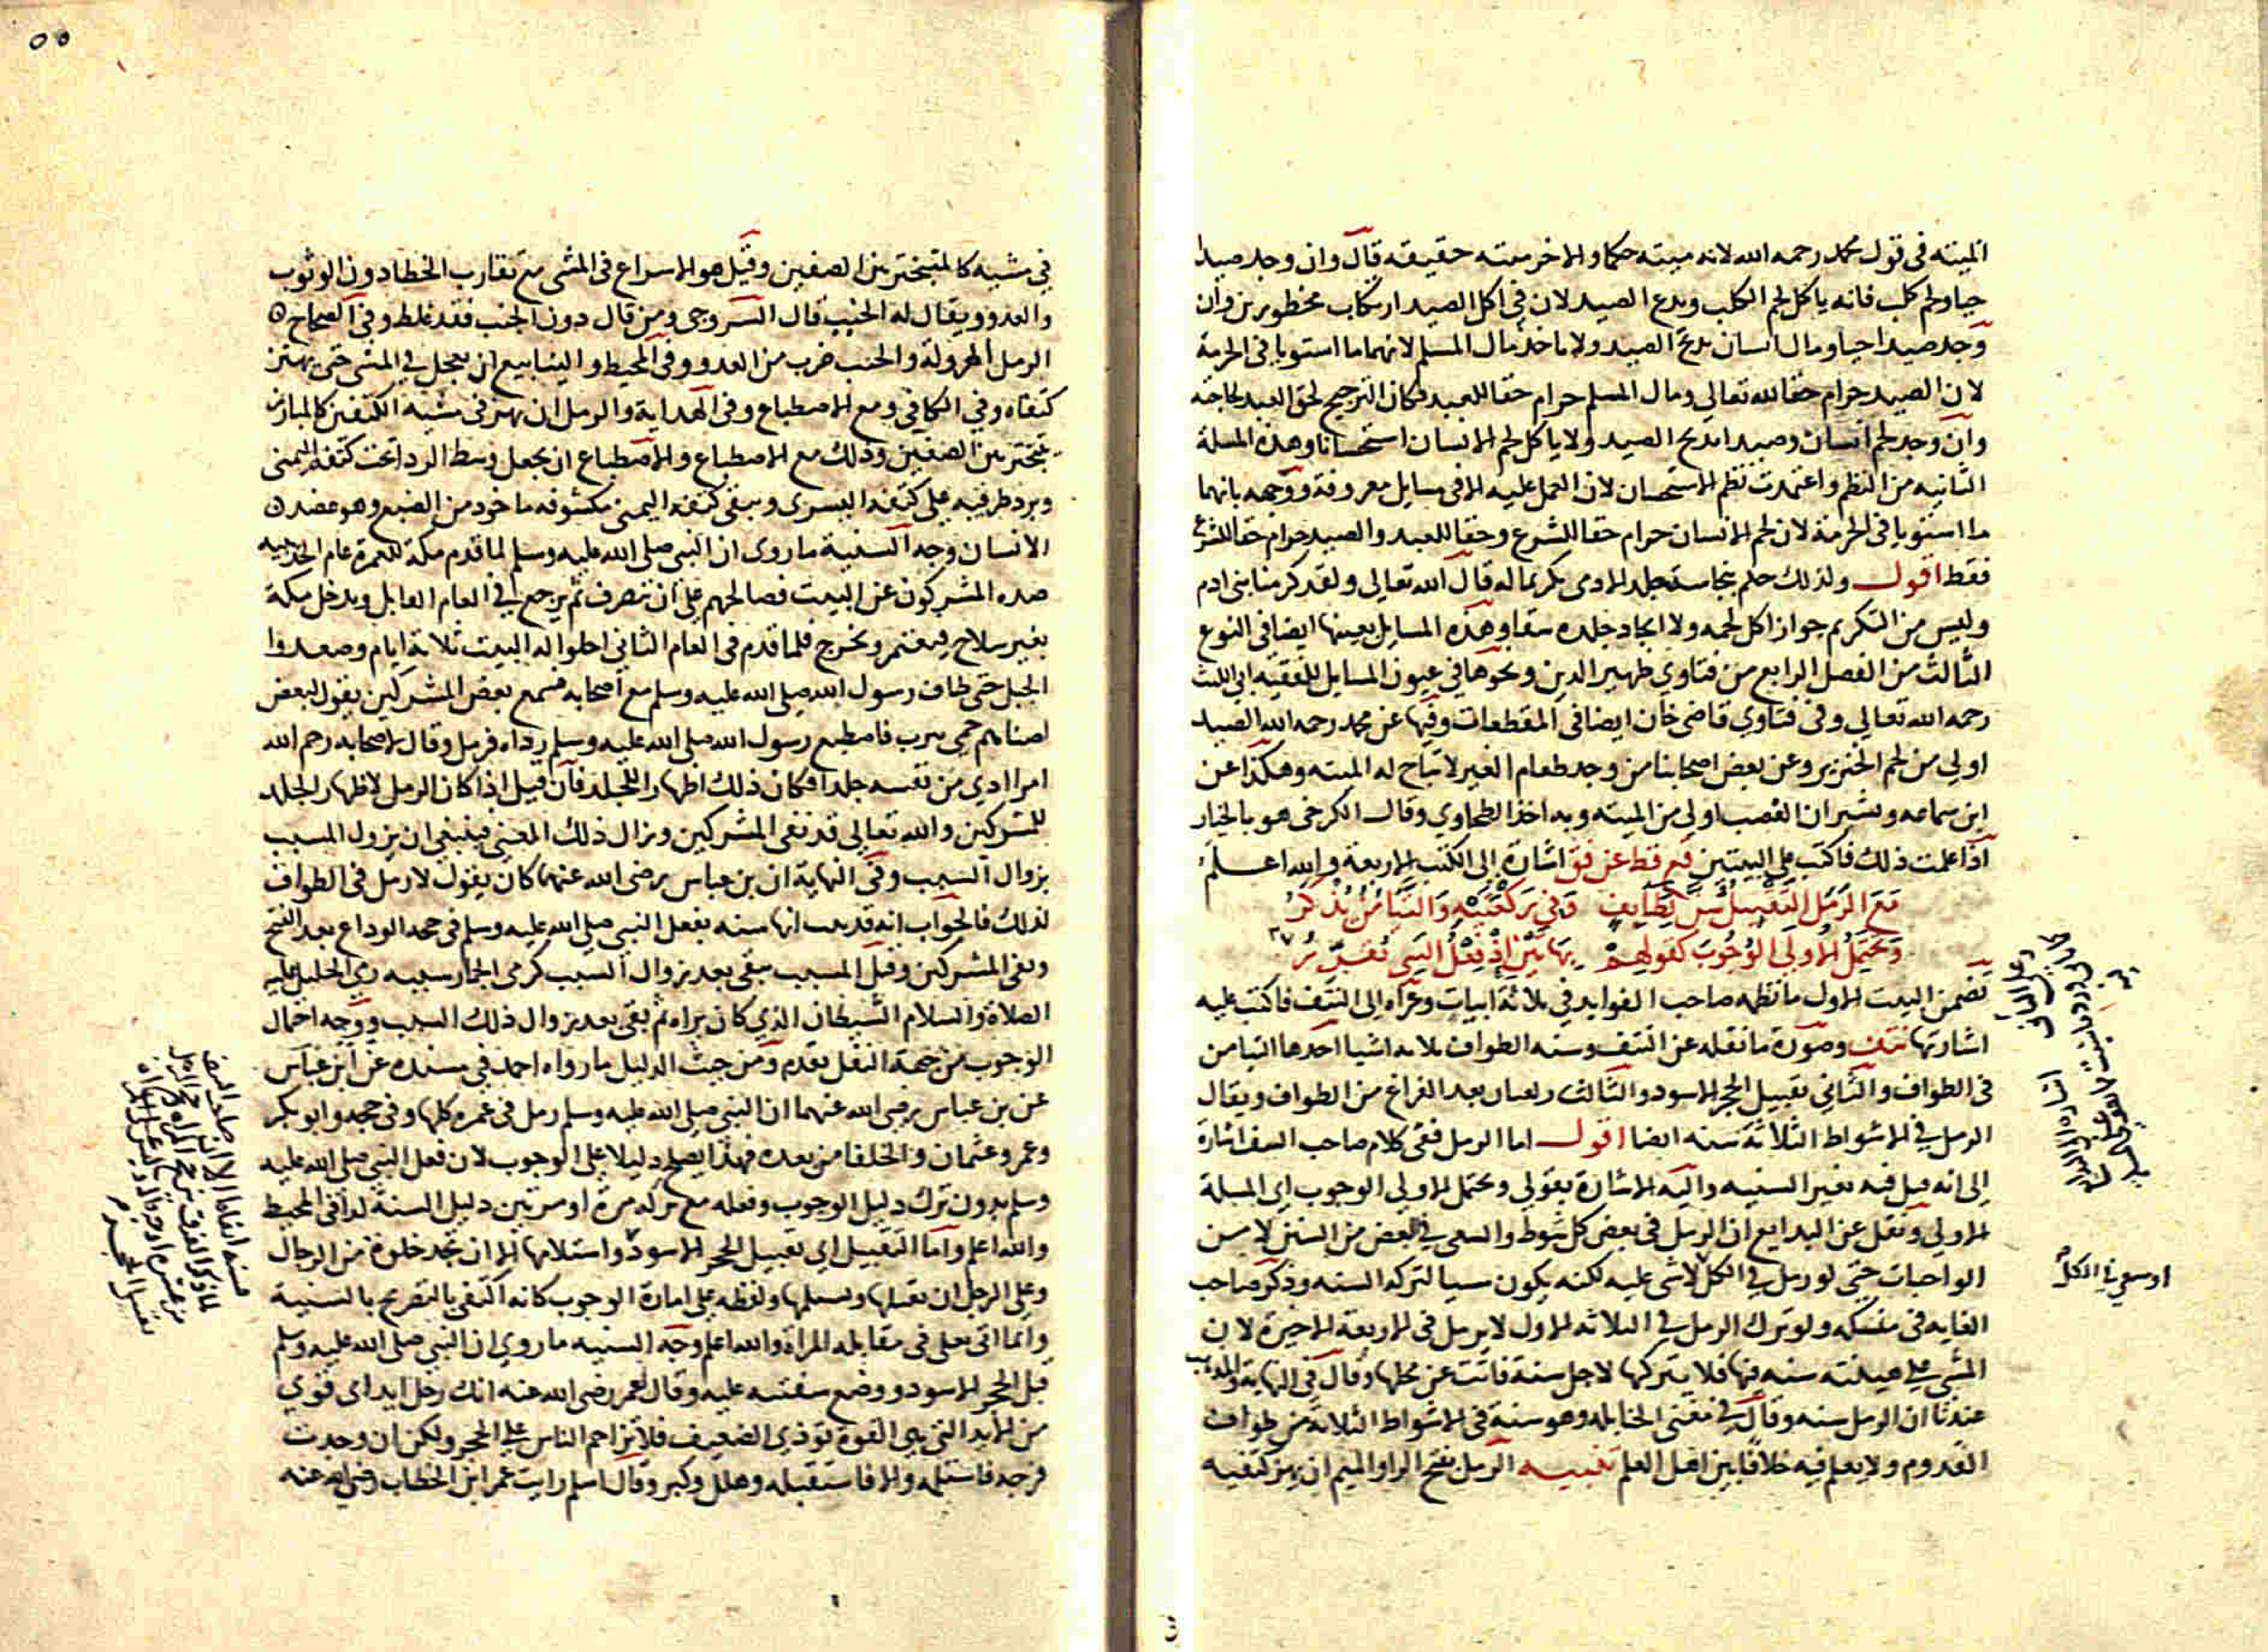 الميته في قول محمد رحمه الله لانه ميته حكما والاخر ميته حقيقه قال وان وجد صيدا
حيا ولحم كلب فانه ياكل لحم الكلب ويدع الصيد لان في اكل الصيد ارتكاب محظورين وان
وجد صيدا حيا ومال انسان يذبح الصيد ولا ياخذ مال المسلم لانهما ما استويا في الحرمة
لان الصيد حرام حقا لله تعالي ومال المسلم حرام حقا للعبد فكان الترجيح لحق العبد لحاجته
وان وجد لحم انسان وصيدا يذبح الصيد ولا ياكل لحم الانسان استحسانا وهذه المسلة
الثانيه من النظم واعتمدت نظم الاستحسان لان العمل عليه الا في مسايل معروفة ووجهه بانهما
ما استويا في الحرمة لان لحم الانسان حرام حقا للشرع وحقا للعبد والصيد حرام حقا للشرع
فقط اقول ولذلك حكم بنجاسة جلد الادمي تكريما له قال الله تعالي ولقد كرمنا بني ادم
وليس من التكريم جواز اكل لحمه ولا اتخاذ جلده سقا وهذه المسايل بعينها ايضا في النوع
الثالث من الفصل الرابع من فتاوي ظهير الدين ونحوها في عيون المسايل للفقيه ابي الليث
رحمه الله تعالي وفي فتاوي قاضي خان ايضا في المقطعات وفيها عن محمد رحمه الله الصيد
اولي من لحم الخنزير وعن بعض اصحابنا من وجد طعام الغير لا تباح له الميته وهكذا عن
ابن سماعه وبشر ان الغصب اولي من الميته وبه اخذ الطحاوي وقال الكرخي هو بالخيار
اذا علمت ذلك فاكتب علي البيتين فع قط عن فق اشارة الي الكتب الاربعة والله اعلم
مع الرمل التقبيل سن لطايف وفي ركعتيه والتيامن يذكر
ويحتمل الاولي الوجوب كقولهم بهاتين اذ فعل النبي تقرر
تضمن البيت الاول ما نظمه صاحب الفوايد في ثلاثة ابيات وعزاه الي النتف فاكتب عليه
اشارتها نتف وصورة ما نقله عن النتف وسنه الطواف ثلاثه اشيا احدها التيامن
في الطواف والثاني تقبيل الحجر الاسود والثالث ركعتان بعد الفراغ من الطواف ويقال
الرمل في الاشواط الثلاثة سنه ايضا اقول اما الرمل ففي كلام صاحب النتف اشارة
الي انه قيل فيه بغير السنيه واليه الاشارة بقولي ويحتمل الاولي الوجوب اي المسلة
الاولي ونقل عن البدايع ان الرمل في بعض كل شوط والسعي في البعض من السنن لا من
الواجبات حتي لو رمل في الكل لا شي عليه لكنه يكون مسيا لتركه السنه وذكر صاحب
الغايه في منسكه ولو ترك الرمل في الثلاثه الاول لا يرمل في الاربعة الاخيرة لان
المشي علي هينته سنه فيها فلا يتركها لاجل سنة فاتت عن محلها وقال في النهاية والمذهب
عندنا ان الرمل سنه وقال في مغني الحنابله وهو سنة في الاشواط الثلاثة من طواف
القدوم ولا يعلم فيه خلافا بين اهل العلم تنبيه الرمل بفتح الرا والميم ان يهز كتفيه
او سعي في الكل
في مشيه كالمتبختر بين الصفين وقيل هو الاسراع في المشي مع تقارب الخطا دون الوثوب
والعدو ويقال له الخبب قال السروجي ومن قال دون الخبب فقد غلط وفي الصحاح
الرمل الهرولة والخبب ضرب من العدو وفي المحيط والينابيع ان يعجل في المشي حتي يهتز
كتفاه وفي الكافي ومع الاضطباع وفي الهداية والرمل ان يهز في مشيه الكتفين كالمبارز
يتبختر بين الصفين وذلك مع الاضطباع والاضطباع ان يجعل وسط الردا تحت كتفه اليمني
ويرد طرفيه علي كتفه اليسري ويبقي كتفه اليمني مكشوفه ماخوذ من الضبع وهو عضد
الانسان وجه السنية ما روي ان النبي صلي الله عليه وسلم لما قدم مكة للعمرة عام الحديبيه
صده المشركون عن البيت فصالحهم علي ان ينصرف ثم يرجع في العام القابل ويدخل مكة
بغير سلاح فيعتمر ويخرج فلما قدم في العام الثاني اخلوا له البيت ثلاثة ايام وصعدوا
الجبل حتي طاف رسول الله صلي الله عليه وسلم مع اصحابه فسمع بعض المشركين يقول لبعض
اضناهم حمي يثرب فاضطبع رسول الله صلي الله عليه وسلم رداه فرمل وقال لاصحابه رحم الله
امرا ادي من نفسه جلدا فكان ذلك اظهارا للجلد فان قيل اذا كان الرمل لاظهار الجلد
للمشركين والله تعالي قد نفي المشركين وزال ذلك المعني فينبغي ان يزول المسبب
بزوال السبب وفي النهاية ان بن عباس رضي الله عنهما كان يقول لا رمل في الطواف
لذلك فالجواب انه قد ثبت انها سنه بفعل النبي صلي الله عليه وسلم في حجة الوداع بعد الفتح
ونفي المشركين وقيل المسبب يبقي بعد زوال السبب كرمي الجمار سببه رمي الخليل عليه
الصلاة والسلام الشيطان الذي كان يراه ثم بقي بعد زوال ذلك السبب ووجه احتمال
الوجوب من جهة النقل تقدم ومن حيث الدليل ما رواه احمد في مسنده عن ابن عباس
عن بن عباس رضي الله عنهما ان النبي صلي الله عليه وسلم رمل في عمره كلها وفي حجه وابو بكر
وعمر وعثمان والخلفا من بعده فهذا يصلح دليلا علي الوجوب لان فعل النبي صلي الله عليه
وسلم بدون ترك دليل الوجوب وفعله مع تركه مرة او مرتين دليل السنة كذا في المحيط
والله اعلم واما التقبيل اي تقبيل الحجر الاسود واستلامها الا ان تجد خلوة من الرجال
وعلي الرجل ان يقبلها ويستلمها ولفظه علي امارة الوجوب كانه اكتفي بالتصريح بالسنية
وانما اتي بعلي في مقابلة المراة والله اعلم وجه السنيه ما روي ان النبي صلي الله عليه وسلم
قبل الحجر الاسود ووضع شفتيه عليه وقال لعمر رضي الله عنه انك رجل ايد اي قوي
من الايد التي هي القوة توذي الضعيف فلا تزاحم الناس علي الحجر ولكن ان وجدت
فرجه فاستلمه والا فاستقبله وهلل وكبر وقال اسلم رايت عمر ابن الخطاب رضي الله عنه